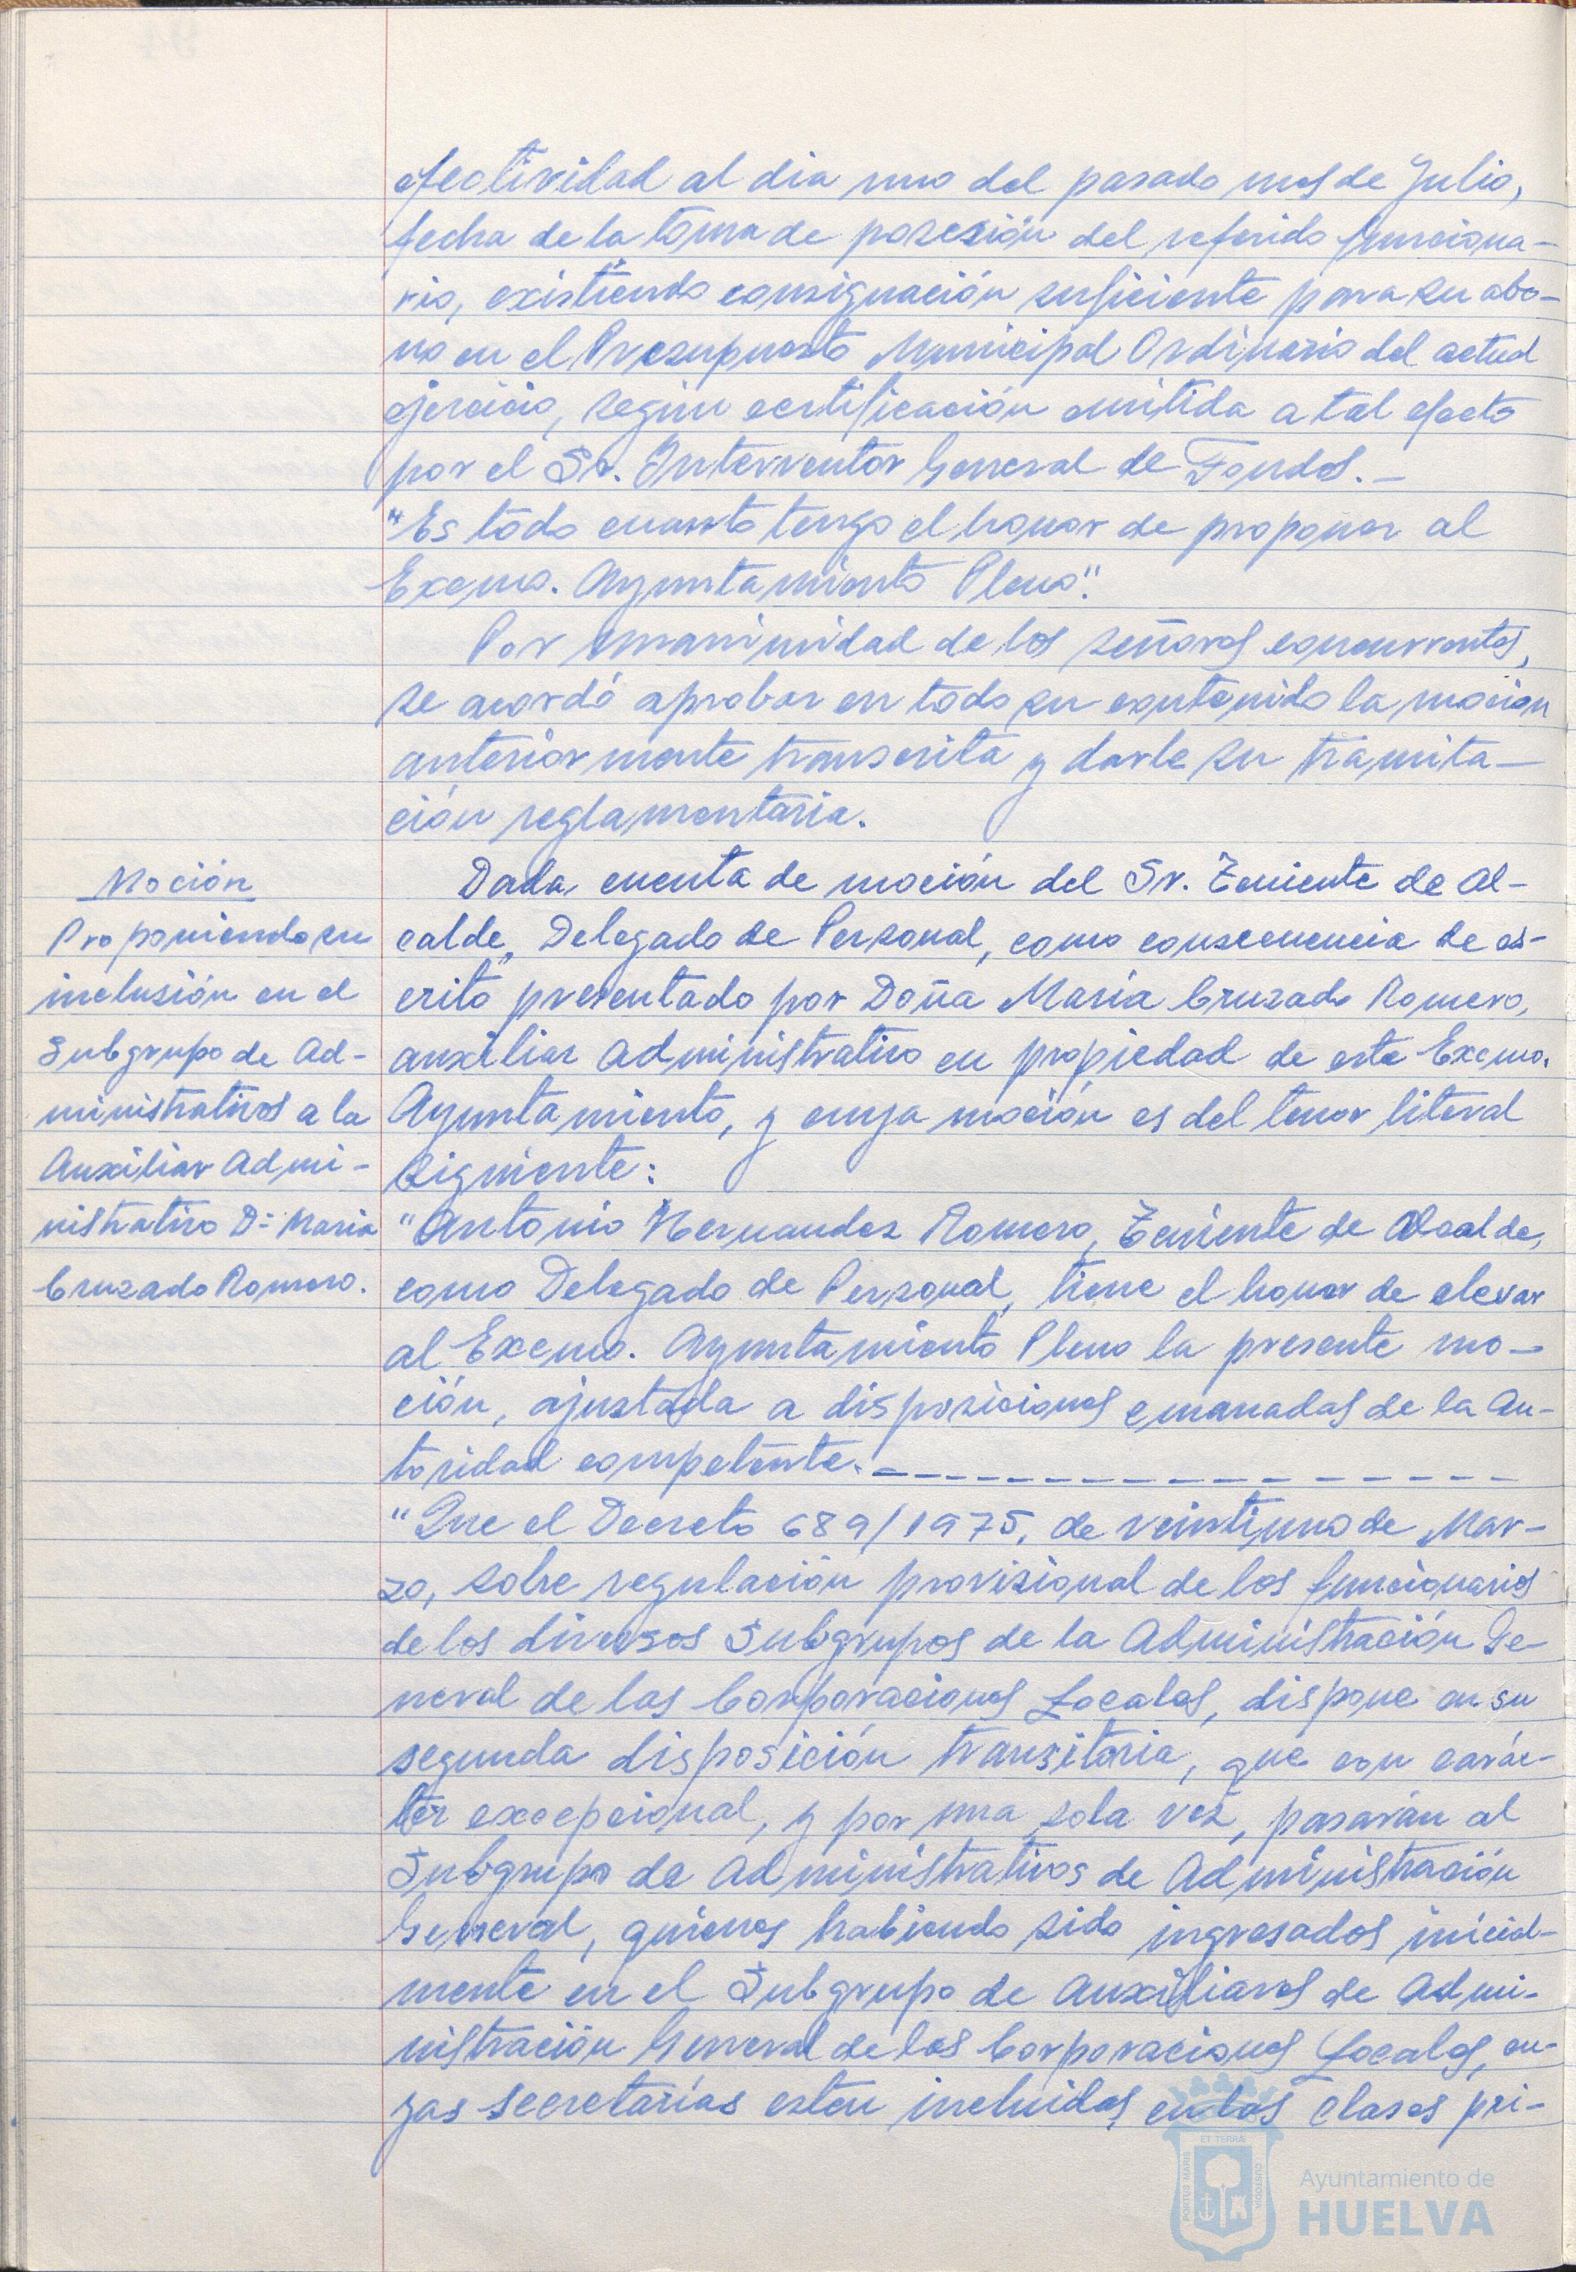 efectividad al dia uno del pasado mes de Julio,
fecha de la toma de posesión del referido funciona-
rio, existiendo consignación suficiente para su abo-
no en el Presupuesto Municipal Ordinario del actual
ejercicio, según certificación emitida a tal efecto
por el Sr. Interventor General de Fondos.-
"Es todo cuanto tengo el honor de proponer al
Excmo. Ayuntamiento Pleno".
Por unanimidad de los señores concurrentes,
se acordó aprobar en todo su contenido la moción
anteriormente transcrita y darle su tramita-
ción reglamentaria.
Moción
Proponiendo su
inclusión en el
Subgrupo de Ad-
ministrativos a la
Auxiliar Admi-
nistrativo Dª Maria
Cruzado Romero.
Dada cuenta de moción del Sr. Teniente de Al-
calde, Delegado de Personal, como consecuencia de es-
crito presentado por Doña María Cruzado Romero,
auxiliar administrativo en propiedad de este Excmo.
Ayuntamiento, y cuya moción es del tenor literal
siguiente:
"Antonio Hernandez Romero, Teniente de Alcalde,
como Delegado de Personal, tiene el honor de elevar
al Excmo. Ayuntamiento Pleno la presente mo-
ción, ajustada a disposiciones emanadas de la Au-
toridad competente.-
"Que el Decreto 689/1975, de veintiuno de Mar-
zo, sobre regulación provisional de los funcionarios
de los diversos Subgrupos de la Administración Ge-
neral de las Corporaciones Locales, dispone en su
segunda disposición transitoria, que con carác-
ter excepcional, y por una sola vez, pasarán al
Subgrupo de Administrativos de Administración
General, quienes habiendo sido ingresados inicial-
mente en el Subgrupo de Auxiliares de Admi-
nistración General de las Corporaciones Locales, cu-
yas secretarías esten incluidas en las clases pri-
PORTUS MARIS ET TERRAE CUSTODIA
Ayuntamiento de
HUELVA